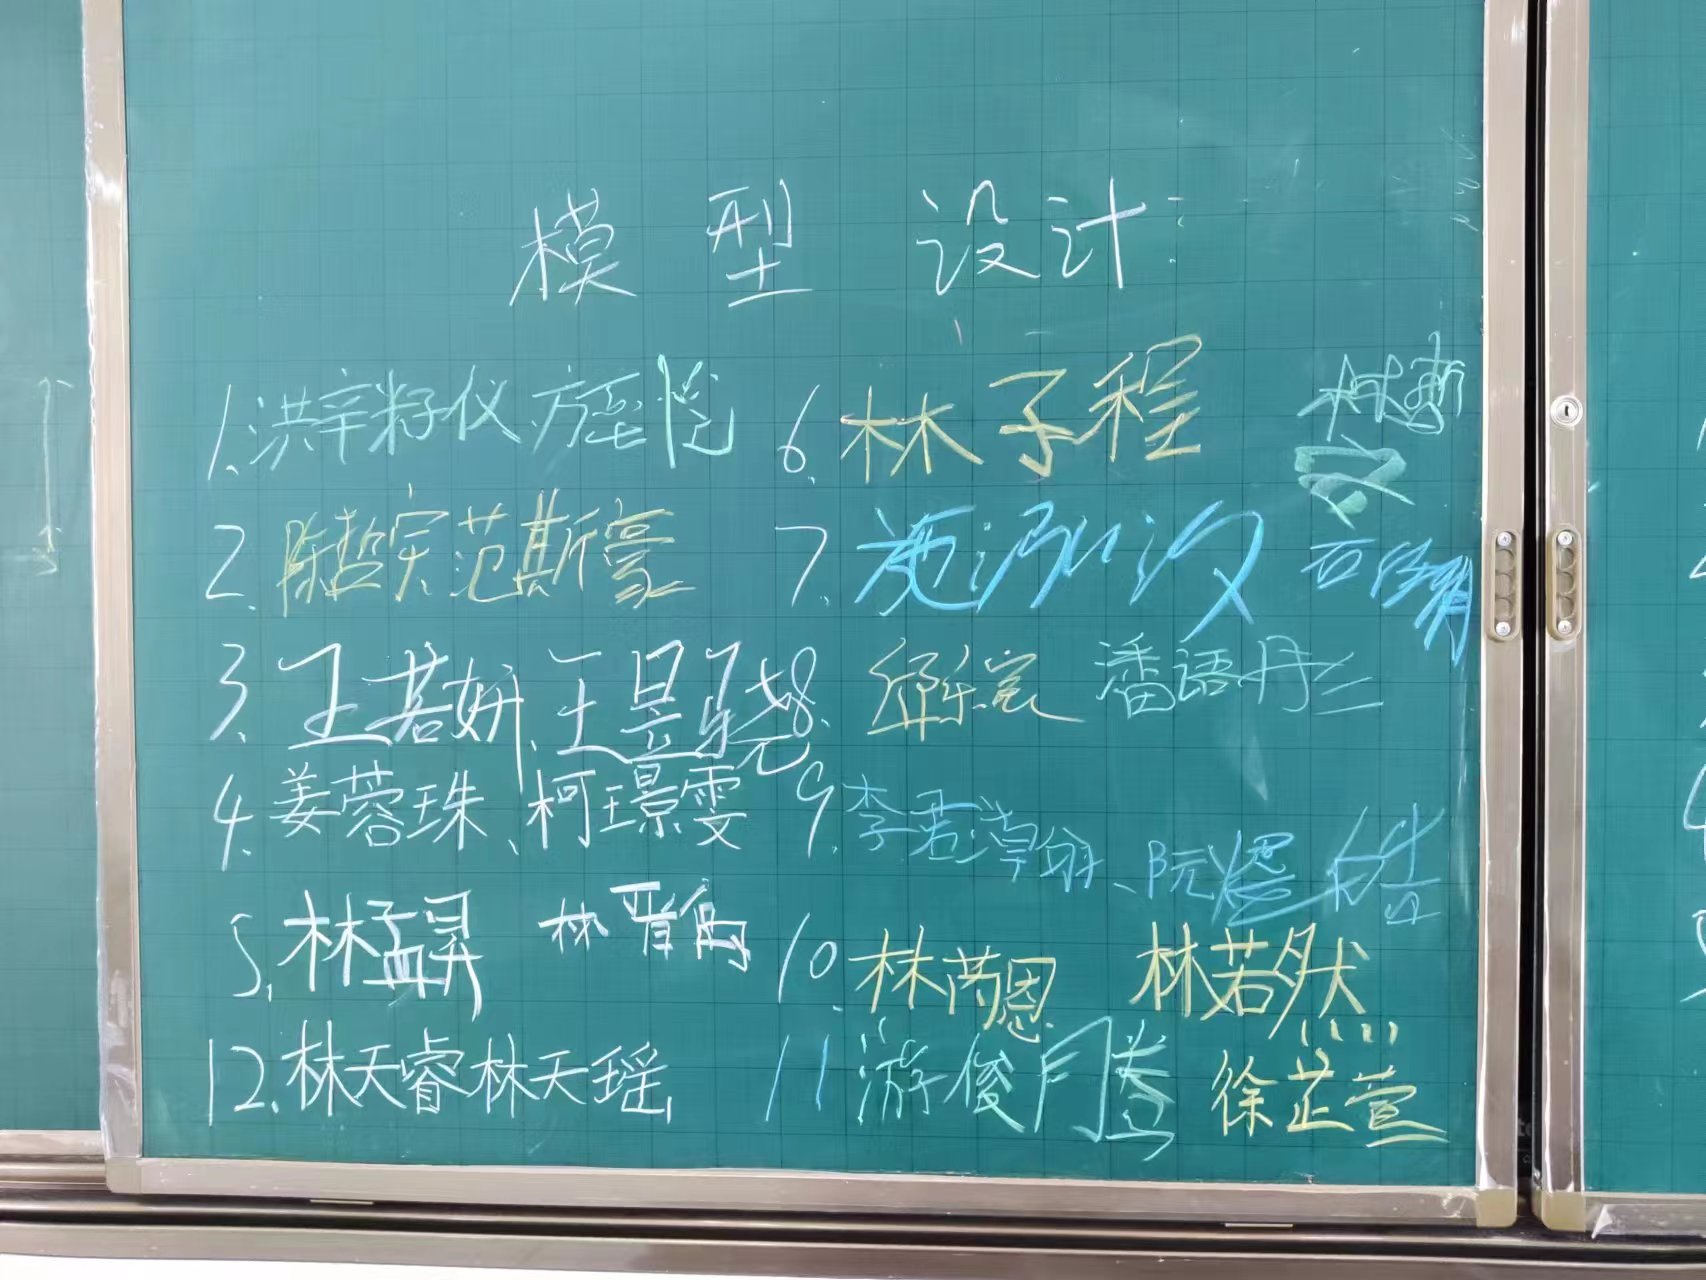 模型设计:
1. 洪辛籽仪 方 悦
2. 陈哲宇 范斯豪
3. 王若妍、王昱骁
4. 姜蓉珠、柯璟雯
5. 林孟昇 林晋
12. 林天睿 林天瑶
6. 林子程 林
7. 施泓汐
8. 潘语彤
9. 李君 、阮煜
10. 林芮恩 林若然
11. 游俊腾 徐芷萱